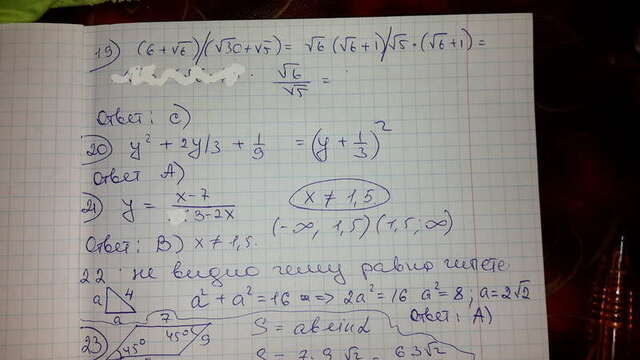 19) (6 + √6)/(√30 + √5) = √6 (√6+1)/√5 · (√6+1) =
√6/√5 =
Ответ: С)
20) y² + 2y/3 + 1/9 = (y + 1/3)²
Ответ А)
21) y = x-7/3-2x x ≠ 1,5
(-∞, 1,5) (1,5; ∞)
Ответ: В) x ≠ 1,5.
22: не видно чему равно
a 4 a a² + a² = 16 => 2a² = 16 a² = 8; a = 2√2
Ответ: А)
23) 7 45° 45° 9 S = ab sin α
S = 7·9 √2 = 63√2